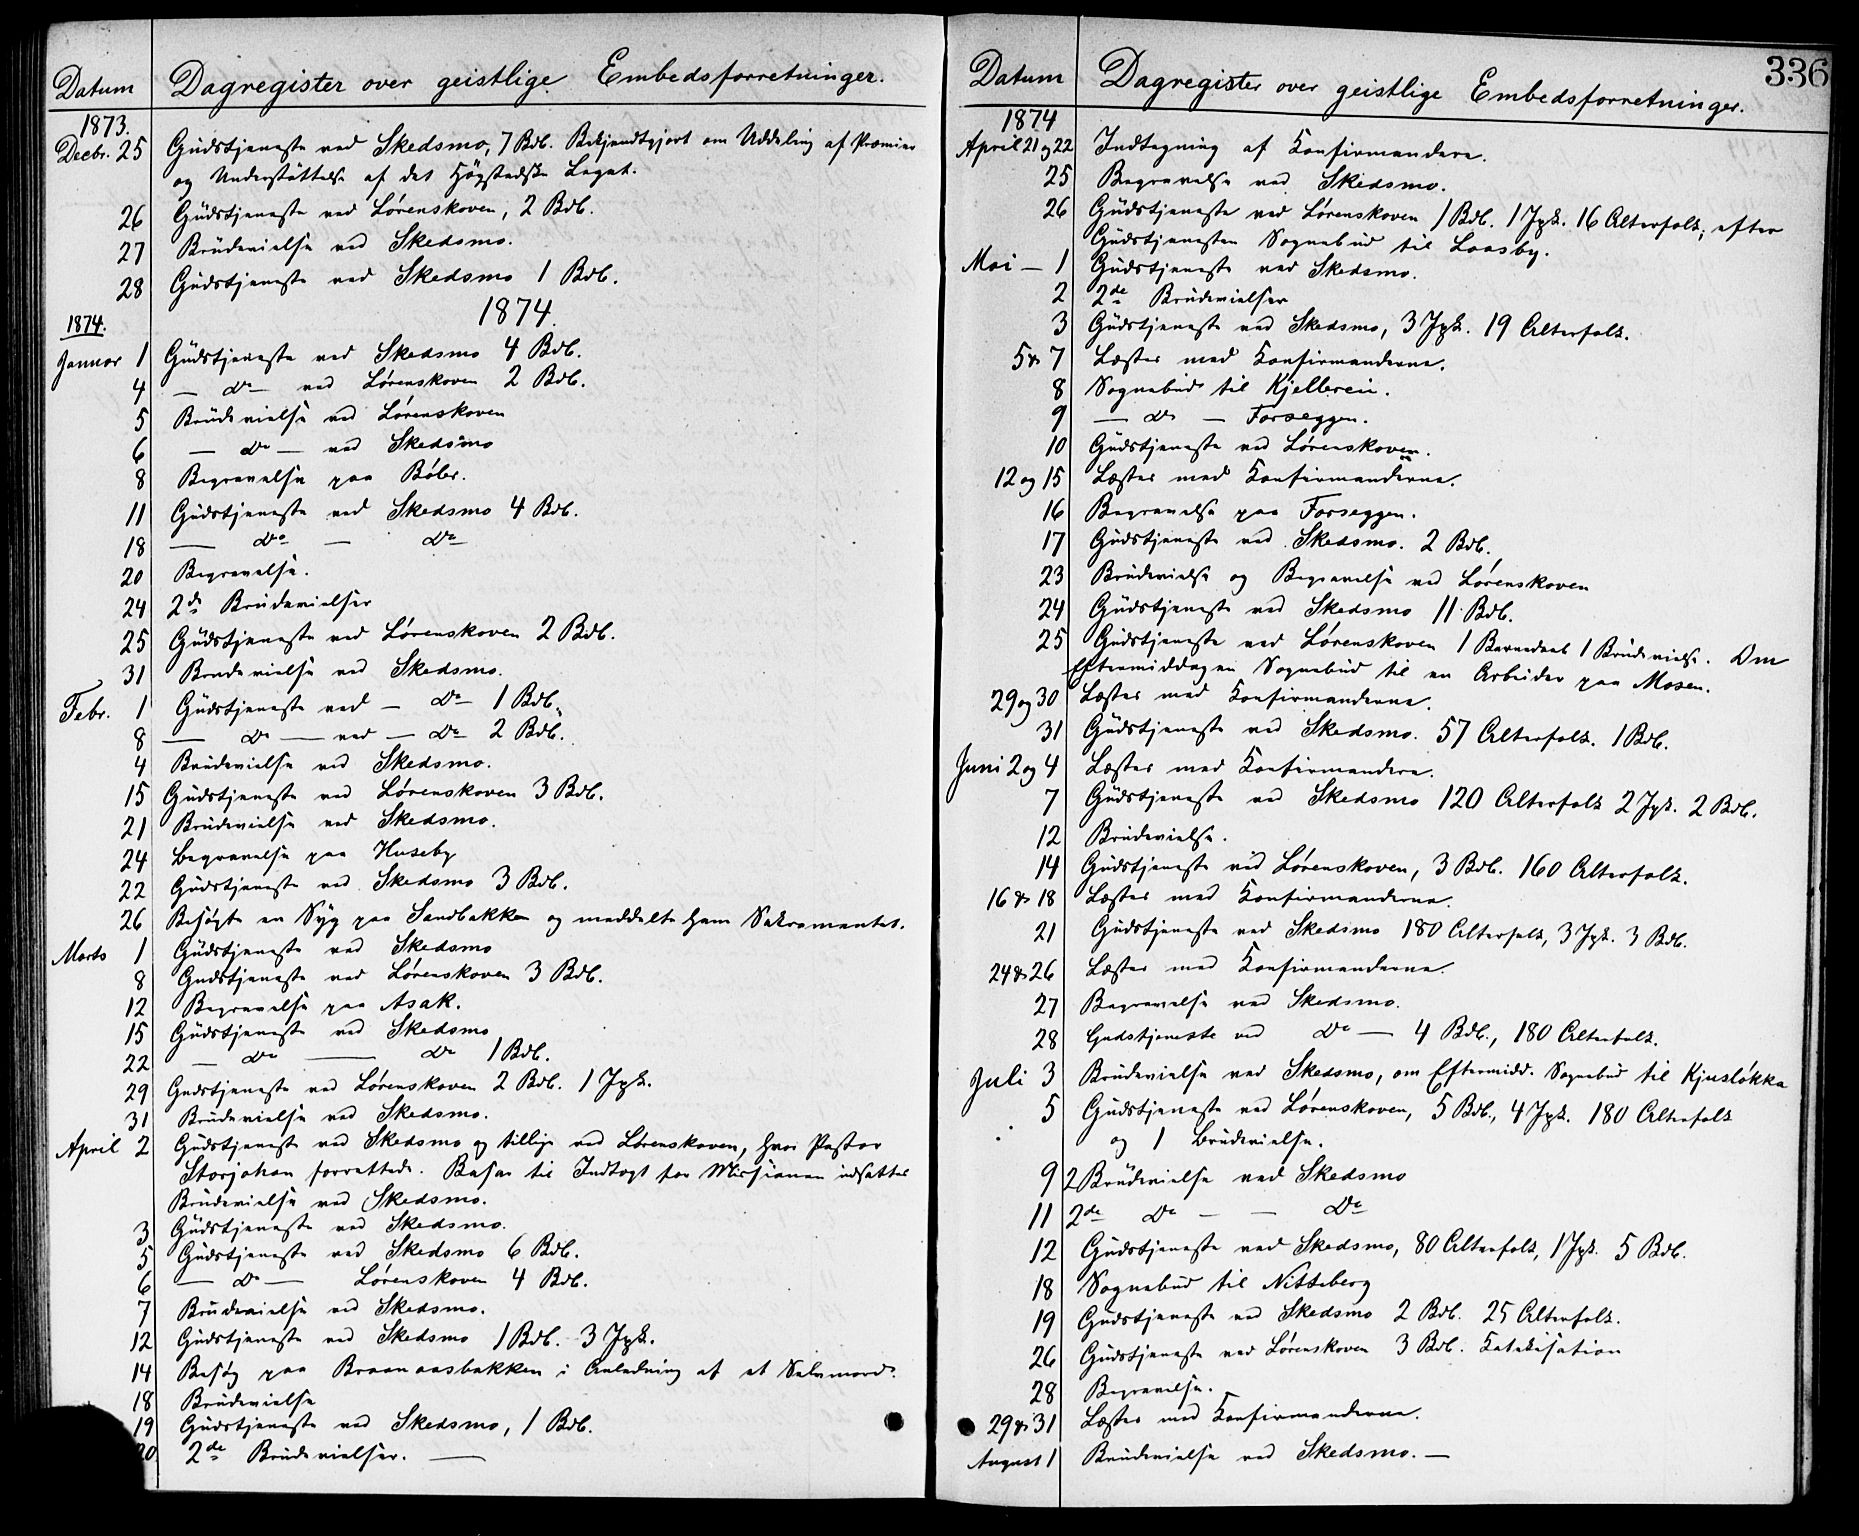 Datum Dagregister over geistlige Embedsforretninger.
1873.
Decbr. 25 Gudstjeneste ved Skedsmo, 7 Bdb. Bekjendtgjort om Uddeling af Præmier
og Understøttelse af det Høgstedske Legat.
26 Gudstjeneste ved Lørenskoven, 2 Bdb.
27 Brudevielse ved Skedsmo.
28 Gudstjeneste ved Skedsmo 1 Bdb.
1874.
1874.
Januar 1 Gudstjeneste ved Skedsmo 4 Bdb.
4 — do — ved Lørenskoven 2 Bdb.
5 Brudevielse ved Lørenskoven
6 — do — ved Skedsmo
8 Begravelse paa Bøler.
11 Gudstjeneste ved Skedsmo 4 Bdb.
18 — do — do
20 Begravelse.
24 2de Brudevielser
25 Gudstjeneste ved Lørenskoven 2 Bdb.
31 Brudevielse ved Skedsmo.
Febr. 1 Gudstjeneste ved — do 1 Bdb.
8 — do — ved — do 2 Bdb.
4 Brudevielse ved Skedsmo.
15 Gudstjeneste ved Lørenskoven 3 Bdb.
21 Brudevielse ved Skedsmo.
24 Begravelse paa Huseby
22 Gudstjeneste ved Skedsmo 3 Bdb.
26 Besøgte en Syg paa Sandbakken og meddelte ham Sakramentet.
Marts 1 Gudstjeneste ved Skedsmo
8 Gudstjeneste ved Lørenskoven 3 Bdb.
12 Begravelse paa Asak.
15 Gudstjeneste ved Skedsmo
22 — do — do 1 Bdb.
29 Gudstjeneste ved Lørenskoven 2 Bdb. 1 Jgk.
31 Brudevielse ved Skedsmo.
April 2 Gudstjeneste ved Skedsmo og tillige ved Lørenskoven, hvor Pastor
Storjohan forrettede. Bøsser til Indtægt for Missionen udsattes
Brudevielse ved Skedsmo.
3 Gudstjeneste ved Skedsmo.
5 Gudstjeneste ved Skedsmo 6 Bdb.
6 — do — Lørenskoven 4 Bdb.
7 Brudevielse ved Skedsmo.
12 Gudstjeneste ved Skedsmo 1 Bdb. 3 Jgk.
14 Besøg paa Braanaasbakken i Anledning af et Selvmord.
18 Brudevielse
19 Gudstjeneste ved Skedsmo, 1 Bdb.
20 2de Brudevielser. —
Datum Dagregister over geistlige Embedsforretninger. 336
1874
April 21 og 22 Indtegning af Konfirmandere.
25 Begravelse ved Skedsmo.
26 Gudstjeneste ved Lørenskoven 1 Bdb. 1 Jgk. 16 Alterfolk; efter
Gudstjenesten Sognebud til Loasby.
Mai — 1 Gudstjeneste ved Skedsmo.
2 2de Brudevielser
3 Gudstjeneste ved Skedsmo, 3 Jgk. 19 Alterfolk.
5 & 7 Læstes med Konfirmanderne.
8 Sognebud til Kjellerein.
9 — do — Forseggen.
10 Gudstjeneste ved Lørenskoven.
12 og 15 Læstes med Konfirmanderne.
16 Begravelse paa Forseggen.
17 Gudstjeneste ved Skedsmo. 2 Bdb.
23 Brudevielse og Begravelse ved Lørenskoven
24 Gudstjeneste ved Skedsmo 11 Bdb.
25 Gudstjeneste ved Lørenskoven 1 Barnedaab 1 Brudevielse. Om
Eftermiddagen Sognebud til en Arbeider paa Mosen.
29 og 30 Læstes med Konfirmanderne.
31 Gudstjeneste ved Skedsmo. 57 Alterfolk. 1 Bdb.
Juni 2 og 4 Læstes med Konfirmandere.
7 Gudstjeneste ved Skedsmo 120 Alterfolk 2 Jgk. 2 Bdb.
12 Brudevielse.
14 Gudstjeneste ved Lørenskoven, 3 Bdb. 160 Alterfolk.
16 & 18 Læstes med Konfirmanderne.
21 Gudstjeneste ved Skedsmo 180 Alterfolk, 3 Jgk. 3 Bdb.
24 & 26 Læstes med Konfirmanderne.
27 Begravelse ved Skedsmo.
28 Gudstjeneste ved do — 4 Bdb., 180 Alterfolk.
Juli 3 Brudevielse ved Skedsmo, om Eftermidd. Sognebud til Kjusløkka
5 Gudstjeneste ved Lørenskoven, 5 Bdb., 4 Jgk. 180 Alterfolk
og 1 Brudevielse.
9 2 Brudevielse ved Skedsmo
11 2de do — — do
12 Gudstjeneste ved Skedsmo, 80 Alterfolk, 1 Jgk. 5 Bdb.
18 Sognebud til Nitteberg
19 Gudstjeneste ved Skedsmo 2 Bdb. 25 Alterfolk.
26 Gudstjeneste ved Lørenskoven 3 Bdb. Katekisation
28 Begravelse.
29 & 31 Læstes med Konfirmanderne.
August 1 Brudevielse ved Skedsmo. —